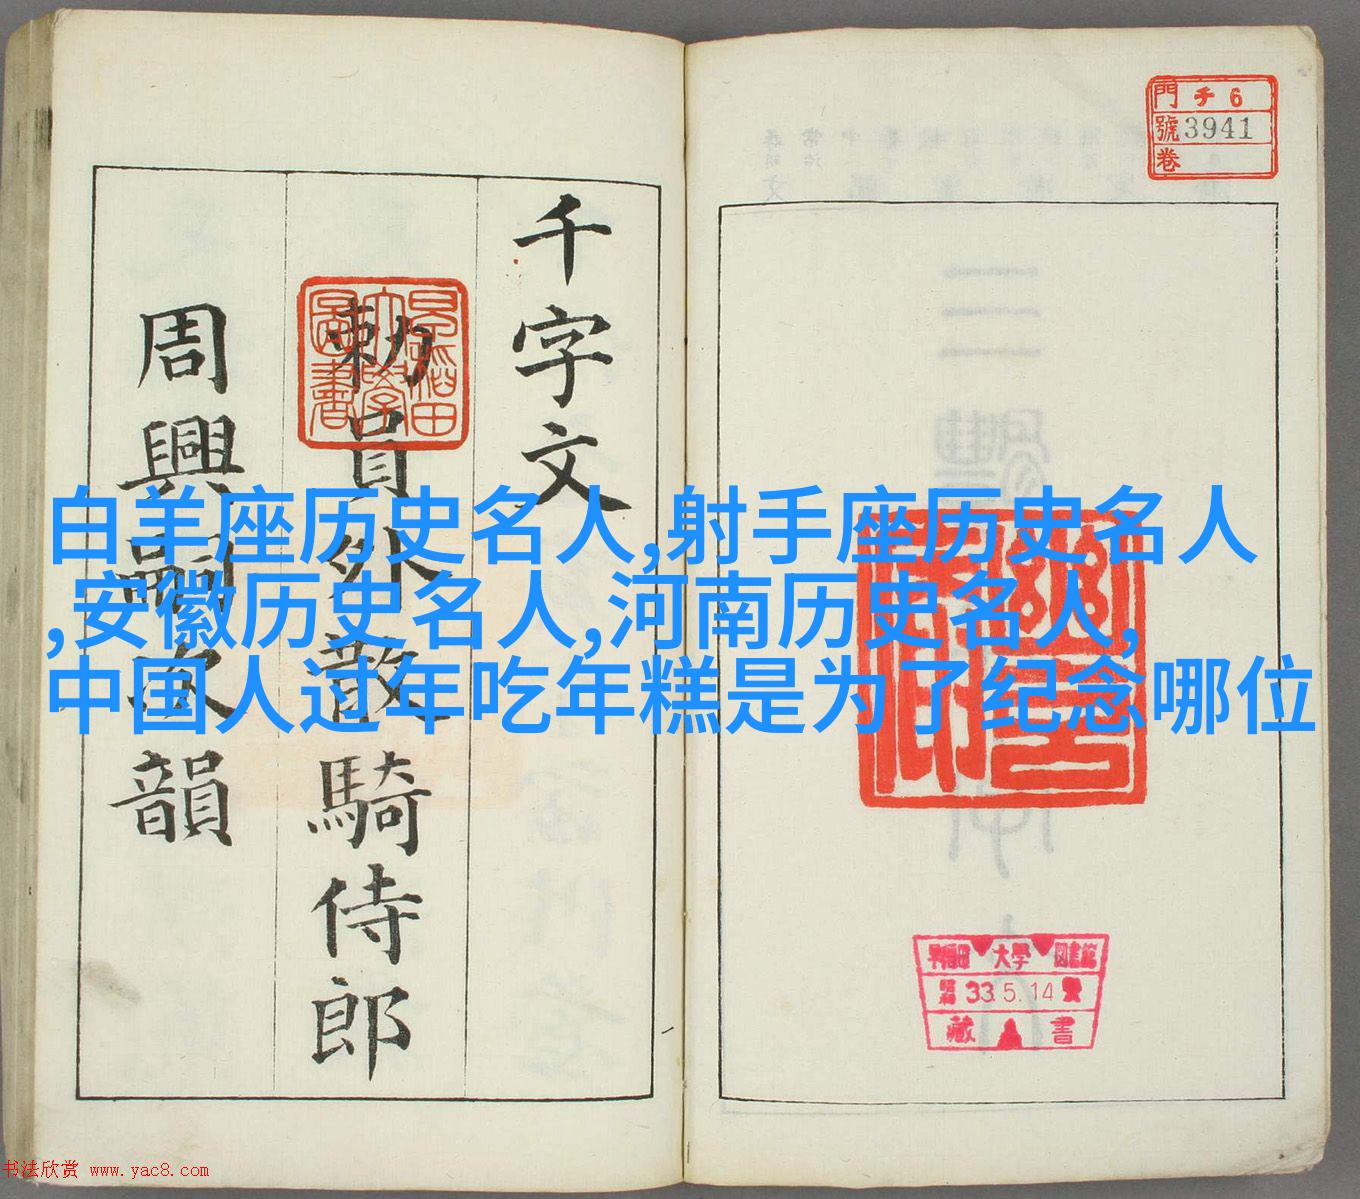 門 千 6
號 3941
卷
千字文
勅員外散騎侍郎
周興嗣次韻
早稲田大学図書
白羊座历史名人,射手座历史名人
,安徽历史名人,河南历史名人,
中国人过年吃年糕是为了纪念哪位
早稲田 大學 図書館
33.5.14
藏 書
书法欣赏 www.yac8.com